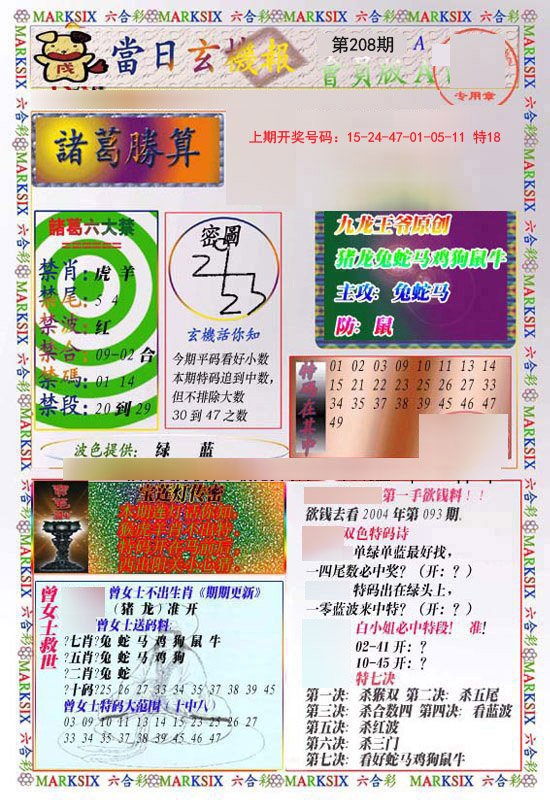 MARKSIX 六合彩 MARKSIX 六合彩 MARKSIX 六合彩 MARKSIX 六合彩
當日玄機報
第208期 A
會員版A
专用章
諸葛勝算
上期开奖号码：15-24-47-01-05-11 特18
諸葛六大禁
禁肖：虎 羊
禁尾：5 4
禁波：红
禁合：09-02 合
禁碼：01 14
禁段：20 到 29
密圖
玄機話你知
今期平码看好小数
本期特码追到中数，
但不排除大数
30 到 47 之数
九龙王爷原创
猪龙兔蛇马鸡狗鼠牛
主攻：兔蛇马
防：鼠
特码在其中
01 02 03 09 10 11 13 14
15 21 22 23 25 26 27 33
34 35 37 38 39 45 46 47
49
波色提供： 绿 蓝
宝莲灯传密
第一手欲钱料！！
欲钱去看 2004 年第 093 期.
双色特码诗
单绿单蓝最好找，
一四尾数必中奖？（开：？）
特码出在绿头上，
一零蓝波来中特？（开：？）
白小姐必中特段！ 准！
02-41 开：？
10-45 开：？
特七决
第一决：杀猴双 第二决：杀五尾
第三决：杀合数四 第四决：看蓝波
第五决：杀红波
第六决：杀三门
第七决：看好蛇马鸡狗鼠牛
曾女士救世
曾女士不出生肖《期期更新》
（猪 龙）准 开
曾女士送码料:
?七肖?兔 蛇 马 鸡 狗 鼠 牛
?五肖?兔 蛇 马 鸡 狗
?二肖?兔 蛇
?十码?25 26 27 33 34 35 37 38 39 45
曾女士特码大范围（十中八）
03 09 10 11 13 14 15 23 25 26 27
33 34 35 37 38 39 45 46 47
MARKSIX 六合彩 MARKSIX 六合彩 MARKSIX 六合彩 MARKSIX 六合彩